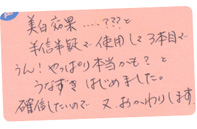 美白効果....???と
半信半疑で使用して3本目で
うん!やっぱり本当かも?と
うなずきはじめました。
確信したいので又、おかわりします